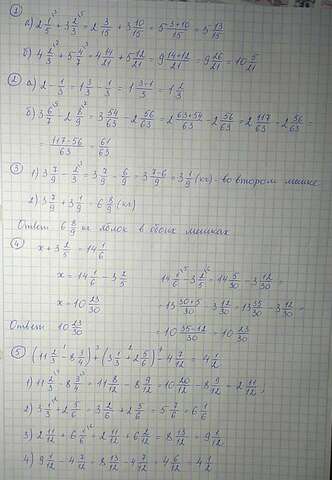 ①
а) 2 1/5 + 3 2/3 = 2 3/15 + 3 10/15 = 5 3+10/15 = 5 13/15
б) 4 2/3 + 5 4/7 = 4 14/21 + 5 12/21 = 9 14+12/21 = 9 26/21 = 10 5/21
② а) 2 - 1/3 = 1 3/3 - 1/3 = 1 3-1/3 = 1 2/3
б) 3 6/7 - 2 8/9 = 3 54/63 - 2 56/63 = 2 63+54/63 - 2 56/63 = 2 117/63 - 2 56/63 =
= 117-56/63 = 61/63
③ 1) 3 7/9 - 2/3 = 3 7/9 - 6/9 = 3 7-6/9 = 3 1/9 (кг) - во втором мешке
2) 3 7/9 + 3 1/9 = 6 8/9 (кг)
Ответ 6 8/9 кг яблок в обоих мешках
④ x + 3 2/5 = 14 1/6
x = 14 1/6 - 3 2/5 14 1/6 - 3 2/5 = 14 5/30 - 3 12/30 =
x = 10 23/30 = 13 30+5/30 - 3 12/30 = 13 35/30 - 3 12/30 =
Ответ 10 23/30 = 10 35-12/30 = 10 23/30
⑤ (11 2/3 - 8 3/4) + (3 1/3 + 2 5/6) - 4 7/12 = 4 1/2
1) 11 2/3 - 8 3/4 = 11 8/12 - 8 9/12 = 10 20/12 - 8 9/12 = 2 11/12,
2) 3 1/3 + 2 5/6 = 3 2/6 + 2 5/6 = 5 7/6 = 6 1/6
3) 2 11/12 + 6 1/6 = 2 11/12 + 6 2/12 = 8 13/12 = 9 1/12
4) 9 1/12 - 4 7/12 = 8 13/12 - 4 7/12 = 4 6/12 = 4 1/2